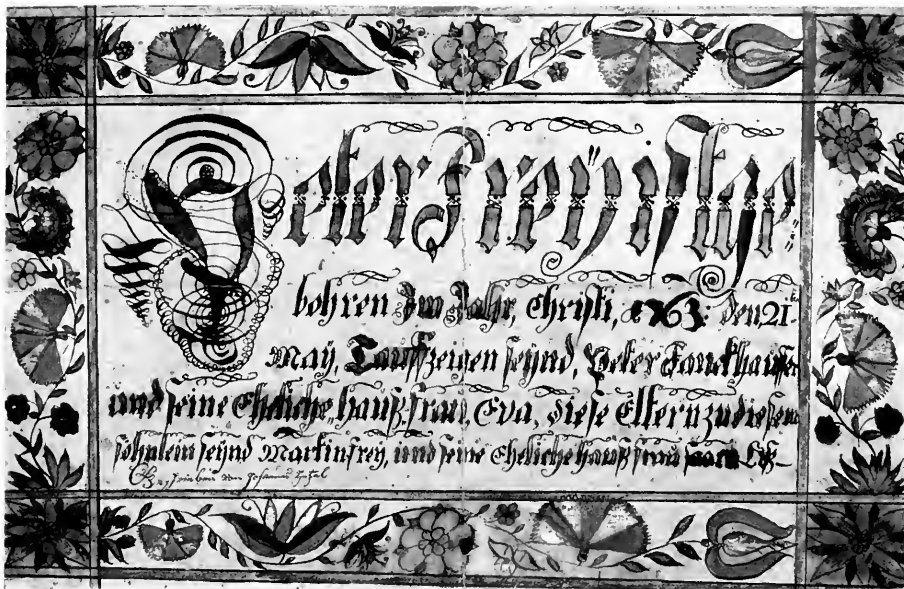 Peter Freÿ ist ge=
bohren im Jahr, Christi, den 21t
Maÿ, Tauffzeigen seynd, Peter Fanckhauser
und seine Eheliche, hauß frau, Eva, diese Eltern zu diesem
söhnlein seynd Martin freÿ, und seine Eheliche hauß frau
Geschrieben von Johannes